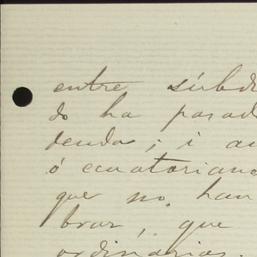 entre súbdi
do ha pasad
denda; i au
ó ecuatoriano
que no han
brar, que
ordinarias.